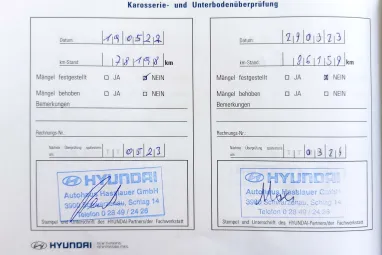 Karosserie- und Unterbodenüberprüfung
Datum 19 05 22
km-Stand 78198 km
Mängel festgestellt JA NEIN
Mängel behoben JA NEIN
Bemerkungen
Rechnungs-Nr.
Nächste Überprüfung spätestens am 05 23
HYUNDAI
Autohaus Hasslauer GmbH
3900 Schwarzenau, Schlag 14
Telefon 0 28 49 / 24 26
Stempel und Unterschrift des HYUNDAI-Partners/der Fachwerkstatt
Datum 29 03 23
km-Stand 86159 km
Mängel festgestellt JA NEIN
Mängel behoben JA NEIN
Bemerkungen
Rechnungs-Nr.
Nächste Überprüfung spätestens am 03 24
HYUNDAI
Autohaus Hasslauer GmbH
3900 Schwarzenau, Schlag 14
Telefon 0 28 49 / 24 26
Stempel und Unterschrift des HYUNDAI-Partners/der Fachwerkstatt
HYUNDAI